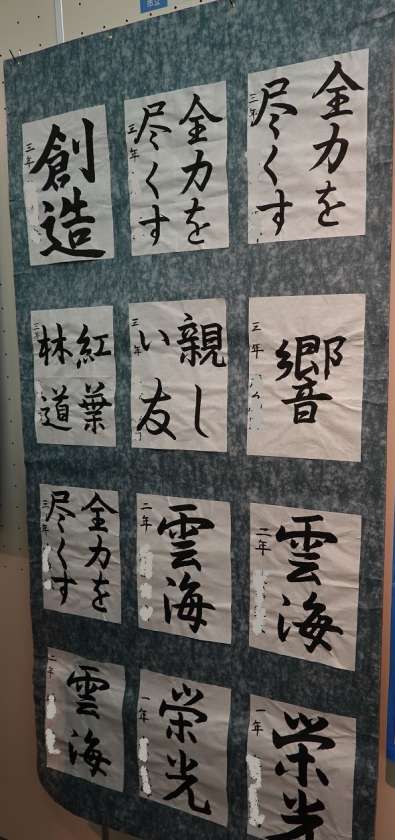 市立
全力を
尽くす
三年
全力を
尽くす
三年
創造
三年
響
三年
親し
い友
三年
紅葉
林道
三年
雲海
二年
雲海
二年
全力を
尽くす
三年
栄光
一年
栄光
一年
雲海
二年